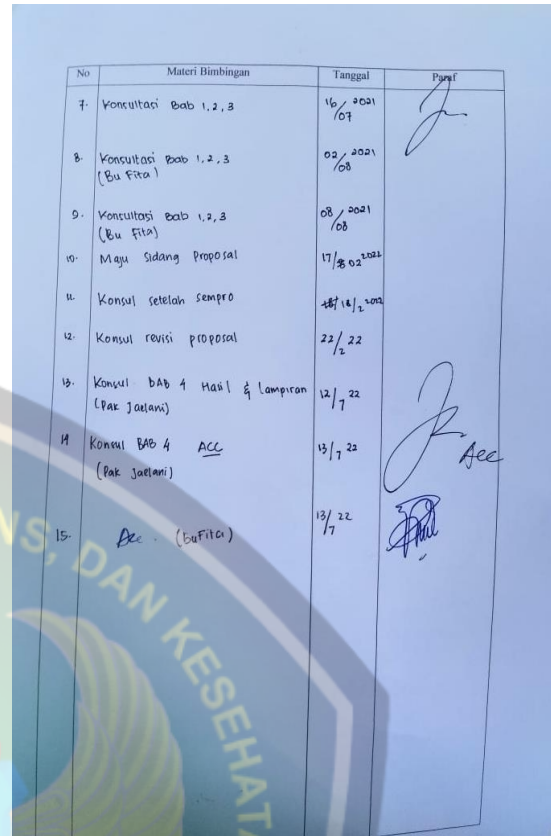 No Materi Bimbingan Tanggal Paraf
7. Konsultasi Bab 1, 2, 3 16/07 2021
8. Konsultasi Bab 1, 2, 3 02/08 2021
(Bu Fita)
9. Konsultasi Bab 1, 2, 3 08/08 2021
(Bu Fita)
10. Maju Sidang Proposal 17/02 2022
11. Konsul setelah sempro 18/2 2022
12. Konsul revisi proposal 22/2 22
13. Konsul BAB 4 Hasil & Lampiran 12/7 22
(Pak Jaelani)
14 Konsul BAB 4 ACC 13/7 22 Acc
(Pak Jaelani)
15. Acc. (bu Fita) 13/7 22
NS, DAN KESEHATA